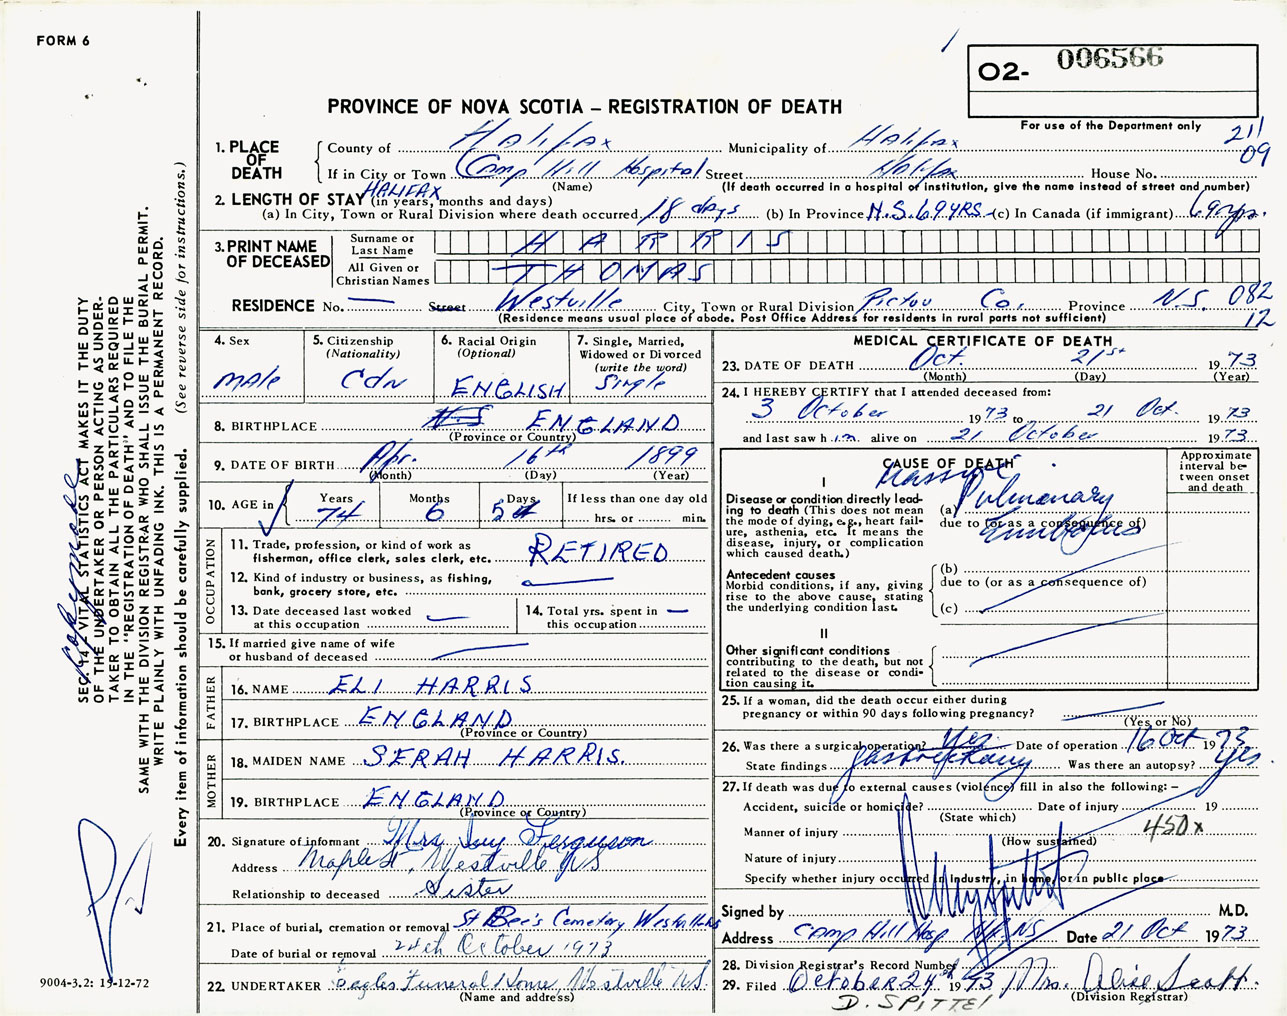 FORM 6
O2- 006566
PROVINCE OF NOVA SCOTIA – REGISTRATION OF DEATH
For use of the Department only
211
09
1. PLACE OF DEATH
County of Halifax Municipality of Halifax
If in City or Town Camp Hill Hospital Street Halifax House No.
(Name) (If death occurred in a hospital or institution, give the name instead of street and number)
HALIFAX
2. LENGTH OF STAY (in years, months and days)
(a) In City, Town or Rural Division where death occurred 18 days (b) In Province N.S. 69 YRS (c) In Canada (if immigrant) 69 yrs.
3. PRINT NAME OF DECEASED
Surname or Last Name HARRIS
All Given or Christian Names THOMAS
RESIDENCE No. — Street Westville City, Town or Rural Division Pictou Co. Province N.S. 082
(Residence means usual place of abode. Post Office Address for residents in rural parts not sufficient) 12
4. Sex
male
5. Citizenship (Nationality)
Cdn
6. Racial Origin (Optional)
ENGLISH
7. Single, Married, Widowed or Divorced (write the word)
Single
8. BIRTHPLACE N.S ENGLAND
(Province or Country)
9. DATE OF BIRTH Apr. 16th 1899
(Month) (Day) (Year)
10. AGE in Years 74 Months 6 Days 5 If less than one day old
hrs. or min.
OCCUPATION
11. Trade, profession, or kind of work as fisherman, office clerk, sales clerk, etc. RETIRED
12. Kind of industry or business, as fishing, bank, grocery store, etc. —
13. Date deceased last worked at this occupation —
14. Total yrs. spent in this occupation —
15. If married give name of wife or husband of deceased —
FATHER
16. NAME ELI HARRIS
17. BIRTHPLACE ENGLAND
(Province or Country)
MOTHER
18. MAIDEN NAME SERAH HARRIS.
19. BIRTHPLACE ENGLAND
(Province or Country)
20. Signature of informant Mrs Ivy Ferguson
Address Maple St, Westville NS
Relationship to deceased Sister
21. Place of burial, cremation or removal St Bee's Cemetery Westville NS
Date of burial or removal 24th October 1973
22. UNDERTAKER Eagles Funeral Home, Westville N.S.
(Name and address)
MEDICAL CERTIFICATE OF DEATH
23. DATE OF DEATH Oct 21st 1973
(Month) (Day) (Year)
24. I HEREBY CERTIFY that I attended deceased from:
3 October 1973 to 21 Oct. 1973
and last saw him alive on 21 October 1973
CAUSE OF DEATH
Approximate interval between onset and death
I
Disease or condition directly leading to death (This does not mean the mode of dying, e.g., heart failure, asthenia, etc. It means the disease, injury, or complication which caused death.)
Massive
(a) Pulmonary
due to (or as a consequence of)
Embolus
Antecedent causes
Morbid conditions, if any, giving rise to the above cause, stating the underlying condition last.
(b)
due to (or as a consequence of)
(c)
II
Other significant conditions
contributing to the death, but not related to the disease or condition causing it.
25. If a woman, did the death occur either during pregnancy or within 90 days following pregnancy? —
(Yes or No)
26. Was there a surgical operation? Yes Date of operation 16 Oct 1973
State findings Was there an autopsy? yes
27. If death was due to external causes (violence) fill in also the following: –
Accident, suicide or homicide? Date of injury 19
(State which)
Manner of injury 450x
(How sustained)
Nature of injury
Specify whether injury occurred in industry, in home, or in public place
Signed by M.D.
Address Camp Hill Hosp Hfx NS Date 21 Oct 1973
28. Division Registrar's Record Number
29. Filed October 24th 1973 Mrs. Alice Scott.
(Division Registrar)
D. SPITTEL
SEC. 14 VITAL STATISTICS ACT MAKES IT THE DUTY
OF THE UNDERTAKER OR PERSON ACTING AS UNDER-
TAKER TO OBTAIN ALL THE PARTICULARS REQUIRED
IN THE "REGISTRATION OF DEATH" AND TO FILE THE
SAME WITH THE DIVISION REGISTRAR WHO SHALL ISSUE THE BURIAL PERMIT.
WRITE PLAINLY WITH UNFADING INK. THIS IS A PERMANENT RECORD.
Every item of information should be carefully supplied. (See reverse side for instructions.)
9004-3.2: 19-12-72